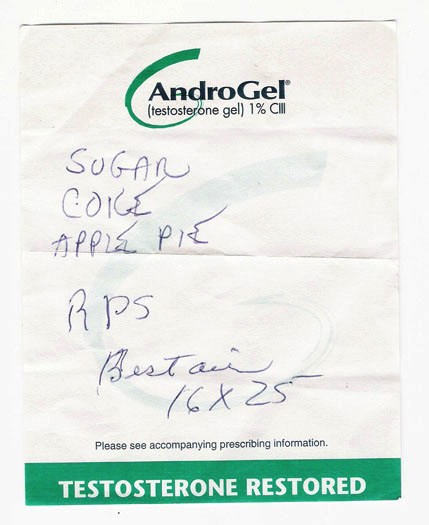 AndroGel®
(testosterone gel) 1% CIII
SUGAR
COKE
APPLE PIE
RPS
Bestair
16X25
Please see accompanying prescribing information.
TESTOSTERONE RESTORED